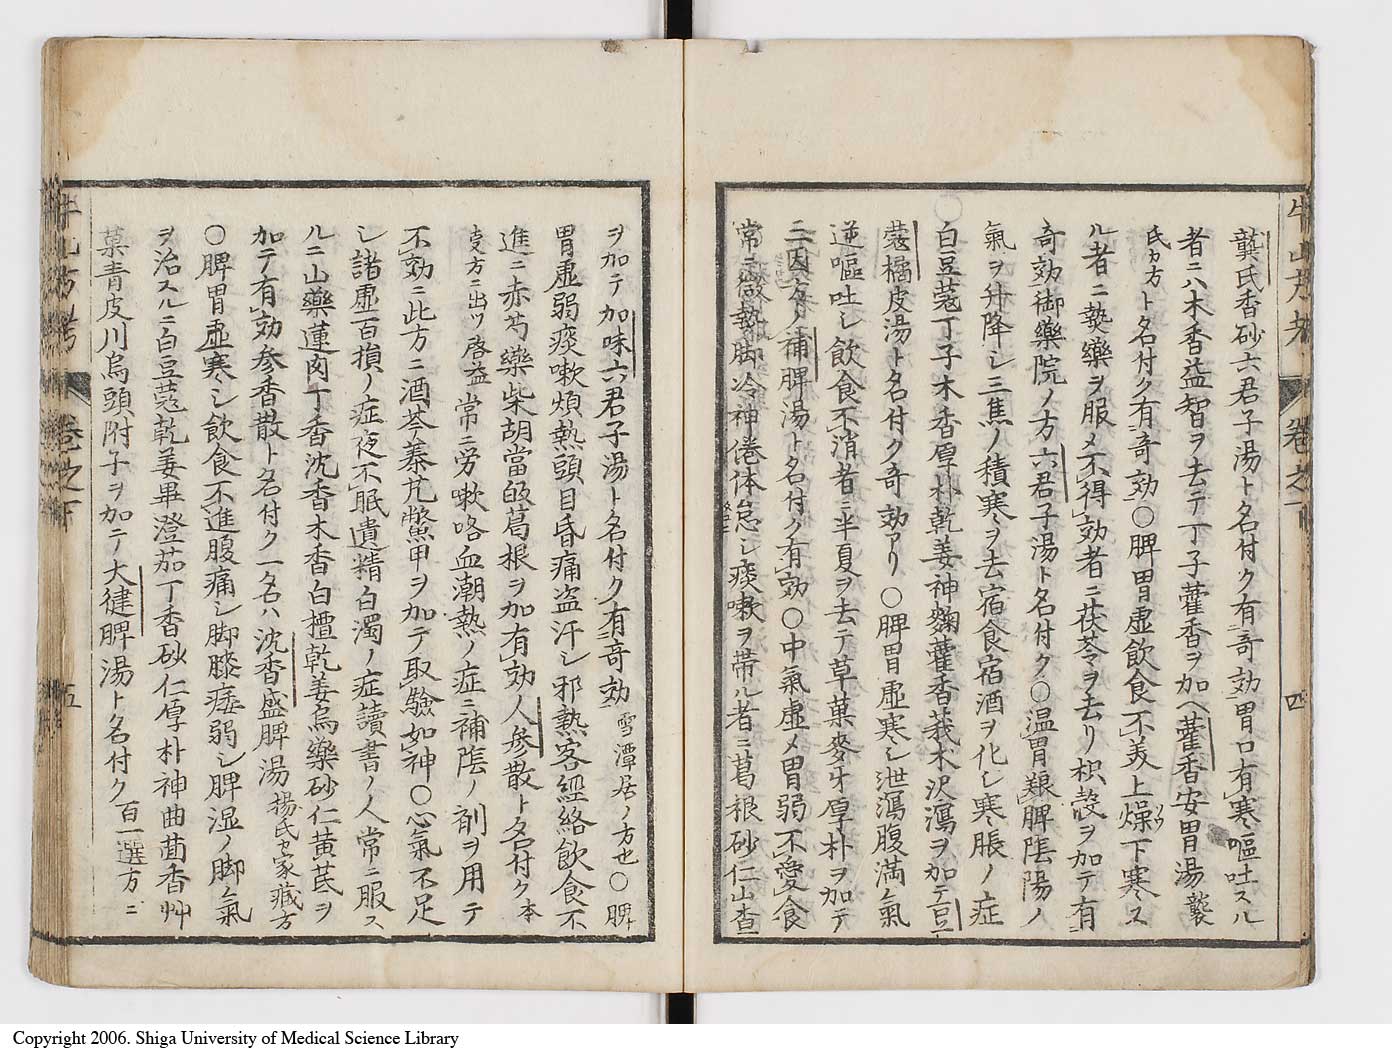 牛山方考 卷之下 四
龔氏香砂六君子湯ト名付ク有奇効胃口有寒嘔吐スル
者ニハ木香益智ヲ去テ丁子藿香ヲ加ヘ藿香安胃湯龔
氏カ方ト名付ク有奇効〇脾胃虚飲食不美上燥下寒ス
ル者ニ熱藥ヲ服メ不得効者ニ茯苓ヲ去リ枳殻ヲ加テ有
奇効御藥院ノ方六君子湯ト名付ク〇温胃頼脾陰陽ノ
氣ヲ升降シ三焦ノ積寒ヲ去宿食宿酒ヲ化シ寒脹ノ症
〇白豆蔻丁子木香厚朴乾姜神麴藿香莪朮沢瀉ヲ加テ豆
蔻橘皮湯ト名付ク奇効アリ〇脾胃虚寒シ泄瀉腹満氣
逆嘔吐シ飲食不消者ニ半夏ヲ去テ草菓麥牙厚朴ヲ加テ
三因方ノ補脾湯ト名付ク有効〇中氣虚メ胃弱不愛食
常ニ微熱脚冷神倦体怠シ痰嗽ヲ帯ル者ニ葛根砂仁山査
ヲ加テ加味六君子湯ト名付ク有奇効雪潭居ノ方也〇脾
胃虚弱痰嗽煩熱頭目昏痛盗汗シ邪熱客經絡飲食不
進ニ赤芍藥柴胡當皈葛根ヲ加有効人参散ト名付ク本
事方ニ出ツ啓益常ニ労嗽咯血潮熱ノ症ニ補陰ノ剤ヲ用テ
不効ニ此方ニ酒芩秦艽鱉甲ヲ加テ取驗如神〇心氣不足
シ諸虚百損ノ症夜不眠遺精白濁ノ症讀書ノ人常ニ服ス
ルニ山藥蓮肉丁香沈香木香白檀乾姜烏藥砂仁黄茋ヲ
加テ有効参香散ト名付ク一名ハ沈香盛脾湯楊氏カ家藏方
〇脾胃虚寒シ飲食不進腹痛シ脚膝痿弱シ脾湿ノ脚氣
ヲ治スルニ白豆蔻乾姜畢澄茄丁香砂仁厚朴神曲茴香艸
菓青皮川烏頭附子ヲ加テ大健脾湯ト名付ク百一選方ニ
牛山方考 卷之下 五
Copyright 2006. Shiga University of Medical Science Library